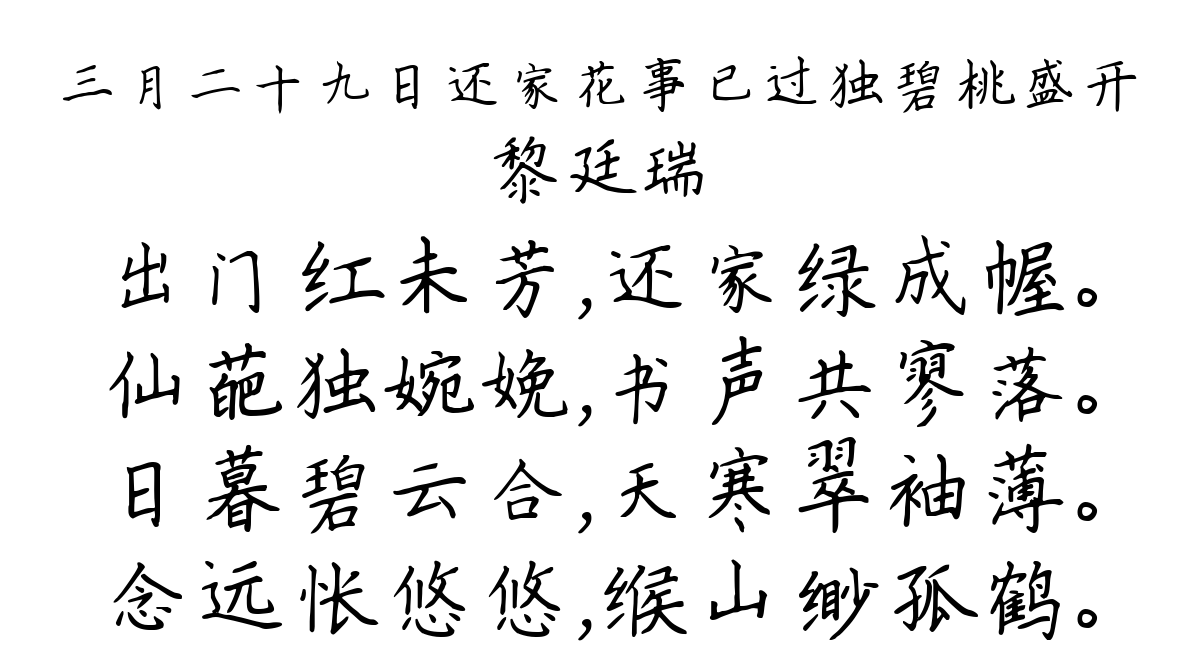 三月二十九日还家花事已过独碧桃盛开
黎廷瑞
出门红未芳,还家绿成幄。
仙葩独婉娩,书声共寥落。
日暮碧云合,天寒翠袖薄。
念远怅悠悠,缑山缈孤鹤。